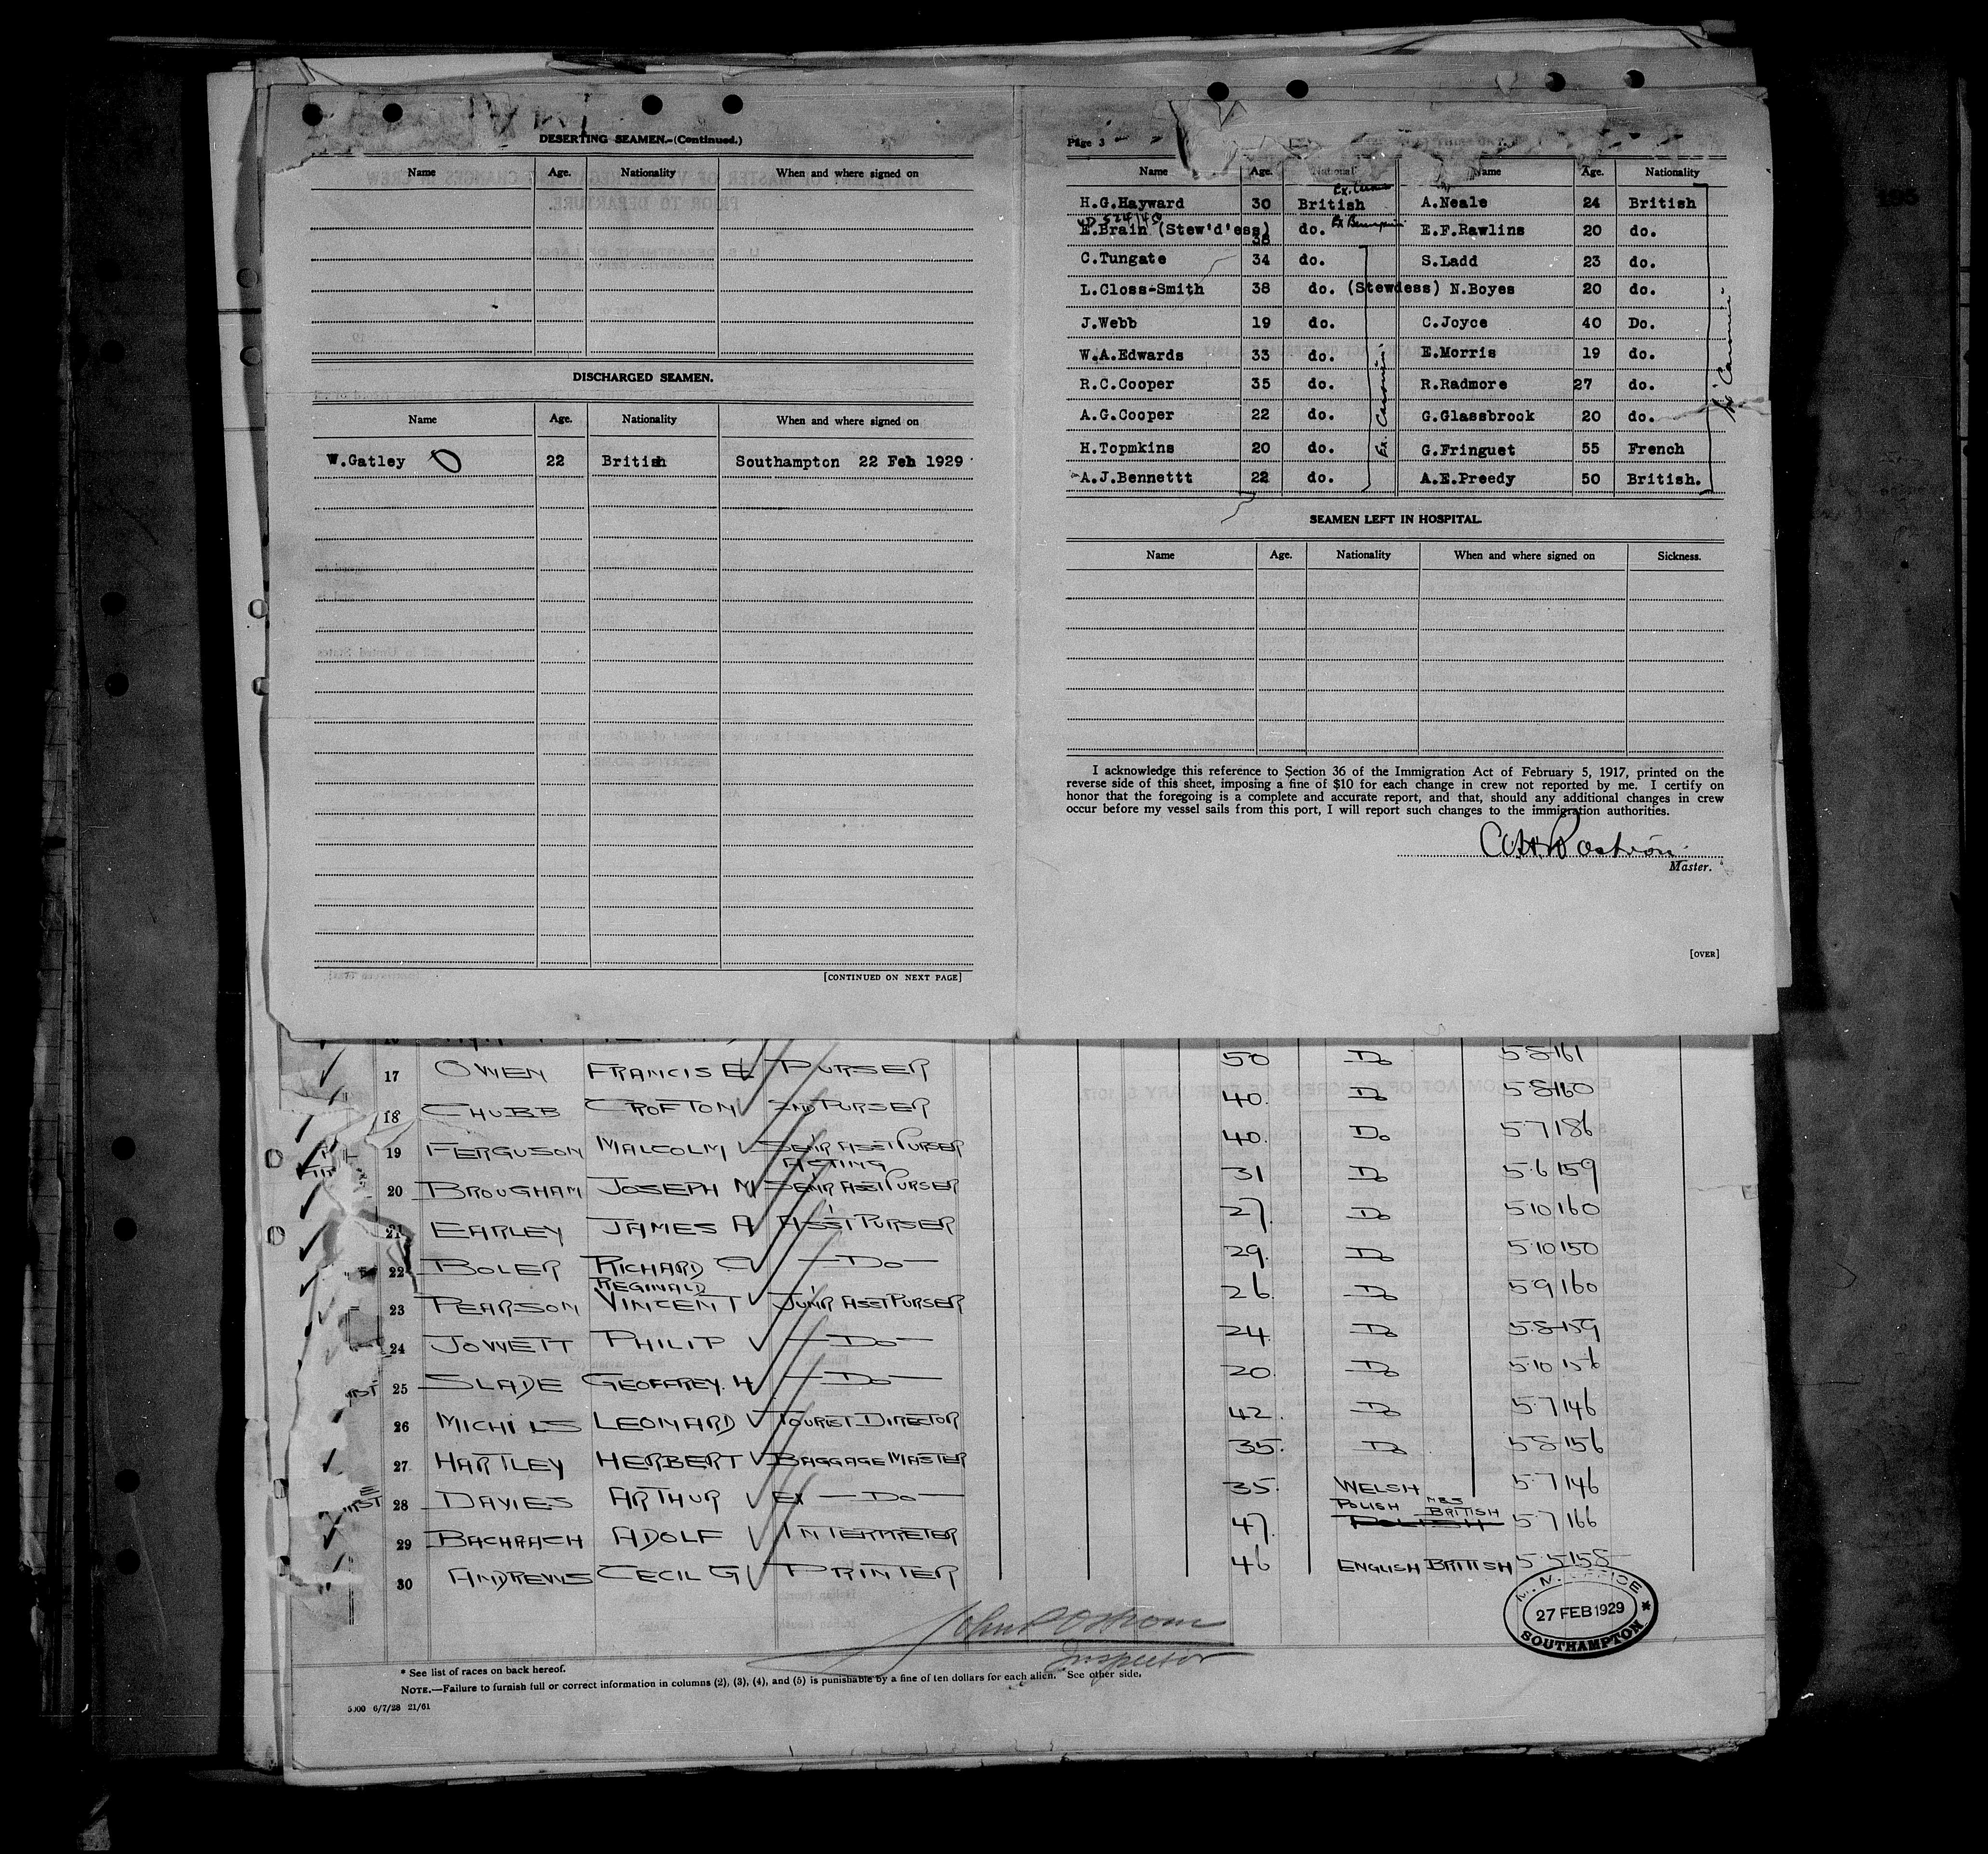 DESERTING SEAMEN.-(Continued.)
Name Age. Nationality When and where signed on
DISCHARGED SEAMEN.
Name Age. Nationality When and where signed on
W.Gatley 22 British Southampton 22 Feb 1929
[CONTINUED ON NEXT PAGE]
Page 3
Name Age. National Name Age. Nationality
H.G.Hayward 30 British A.Neale 24 British
E.Brain (Stew'd'ess) 38 do. E.F.Rawlins 20 do.
C.Tungate 34 do. S.Ladd 23 do.
L.Closs-Smith 38 do. (Stewdess) N.Boyes 20 do.
J.Webb 19 do. C.Joyce 40 Do.
W.A.Edwards 33 do. E.Morris 19 do.
R.C.Cooper 35 do. R.Radmore 27 do.
A.G.Cooper 22 do. G.Glassbrook 20 do.
H.Topmkins 20 do. G.Fringuet 55 French
A.J.Bennettt 22 do. A.E.Preedy 50 British.
SEAMEN LEFT IN HOSPITAL.
Name Age. Nationality When and where signed on Sickness.
I acknowledge this reference to Section 36 of the Immigration Act of February 5, 1917, printed on the
reverse side of this sheet, imposing a fine of $10 for each change in crew not reported by me. I certify on
honor that the foregoing is a complete and accurate report, and that, should any additional changes in crew
occur before my vessel sails from this port, I will report such changes to the immigration authorities.
Master.
[OVER]
50 Do 5·8 161
17 OWEN FRANCIS E PURSER 40. Do 5·8 160
18 CHUBB CROFTON 2ND PURSER 40. Do 5·7 186
19 FERGUSON MALCOLM SENR ASST PURSER 31 Do 5·6 159
ACTING
20 BROUGHAM JOSEPH M SENR ASST PURSER 27. Do 5·10 160
21 EARLEY JAMES A ASST PURSER 29. Do 5·10 150
22 BOLER RICHARD C —Do— 26. Do 5·9 160
REGINALD
23 PEARSON VINCENT JUNR ASST PURSER 24. Do 5·8 159
24 JOWETT PHILIP —Do— 20. Do 5·10 156
25 SLADE GEOFFREY. H —Do— 42. Do 5·7 146
26 MICHILS LEONARD TOURIST DIRECTOR 35. Do 5·8 156
27 HARTLEY HERBERT BAGGAGE MASTER 35. WELSH 5·7 146
28 DAVIES ARTHUR EX —Do— 47. POLISH BRITISH 5·7 166
29 BACHRACH ADOLF INTERPRETER 46 ENGLISH BRITISH 5·5 158
30 ANDREWS CECIL G PRINTER
Inspector
27 FEB 1929
SOUTHAMPTON
* See list of races on back hereof.
NOTE.—Failure to furnish full or correct information in columns (2), (3), (4), and (5) is punishable by a fine of ten dollars for each alien. See other side.
5000 6/7/28 21/61